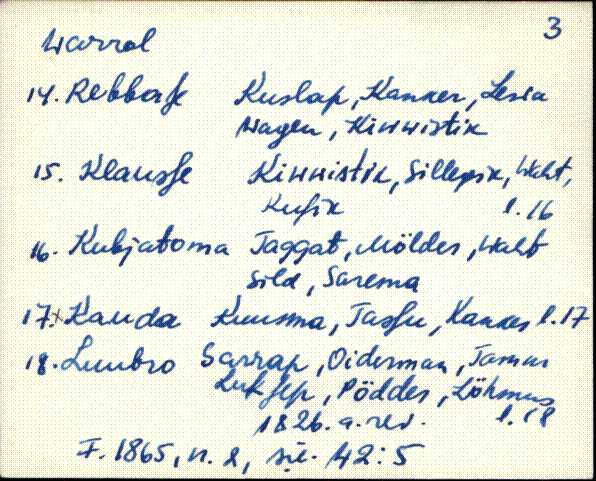 3
Warrol
14. Rebbasse Kuslap, Kanner, Lesta
Wagen, Kinnistik
15. Klausse Kinnistik, Sillepik, Waht,
Kusik l.16
16. Kubjatoma Taggat, Möldes, Waht
Sild, Sarema
17. Kauda Kuusma, Tassu, Kannes l.17
18. Luubro Sarrap, Oiderman, Tamm
Pöddes, Löhmus
1826. a. rev. l.18
F. 1865, n. 2, sü. 42:5